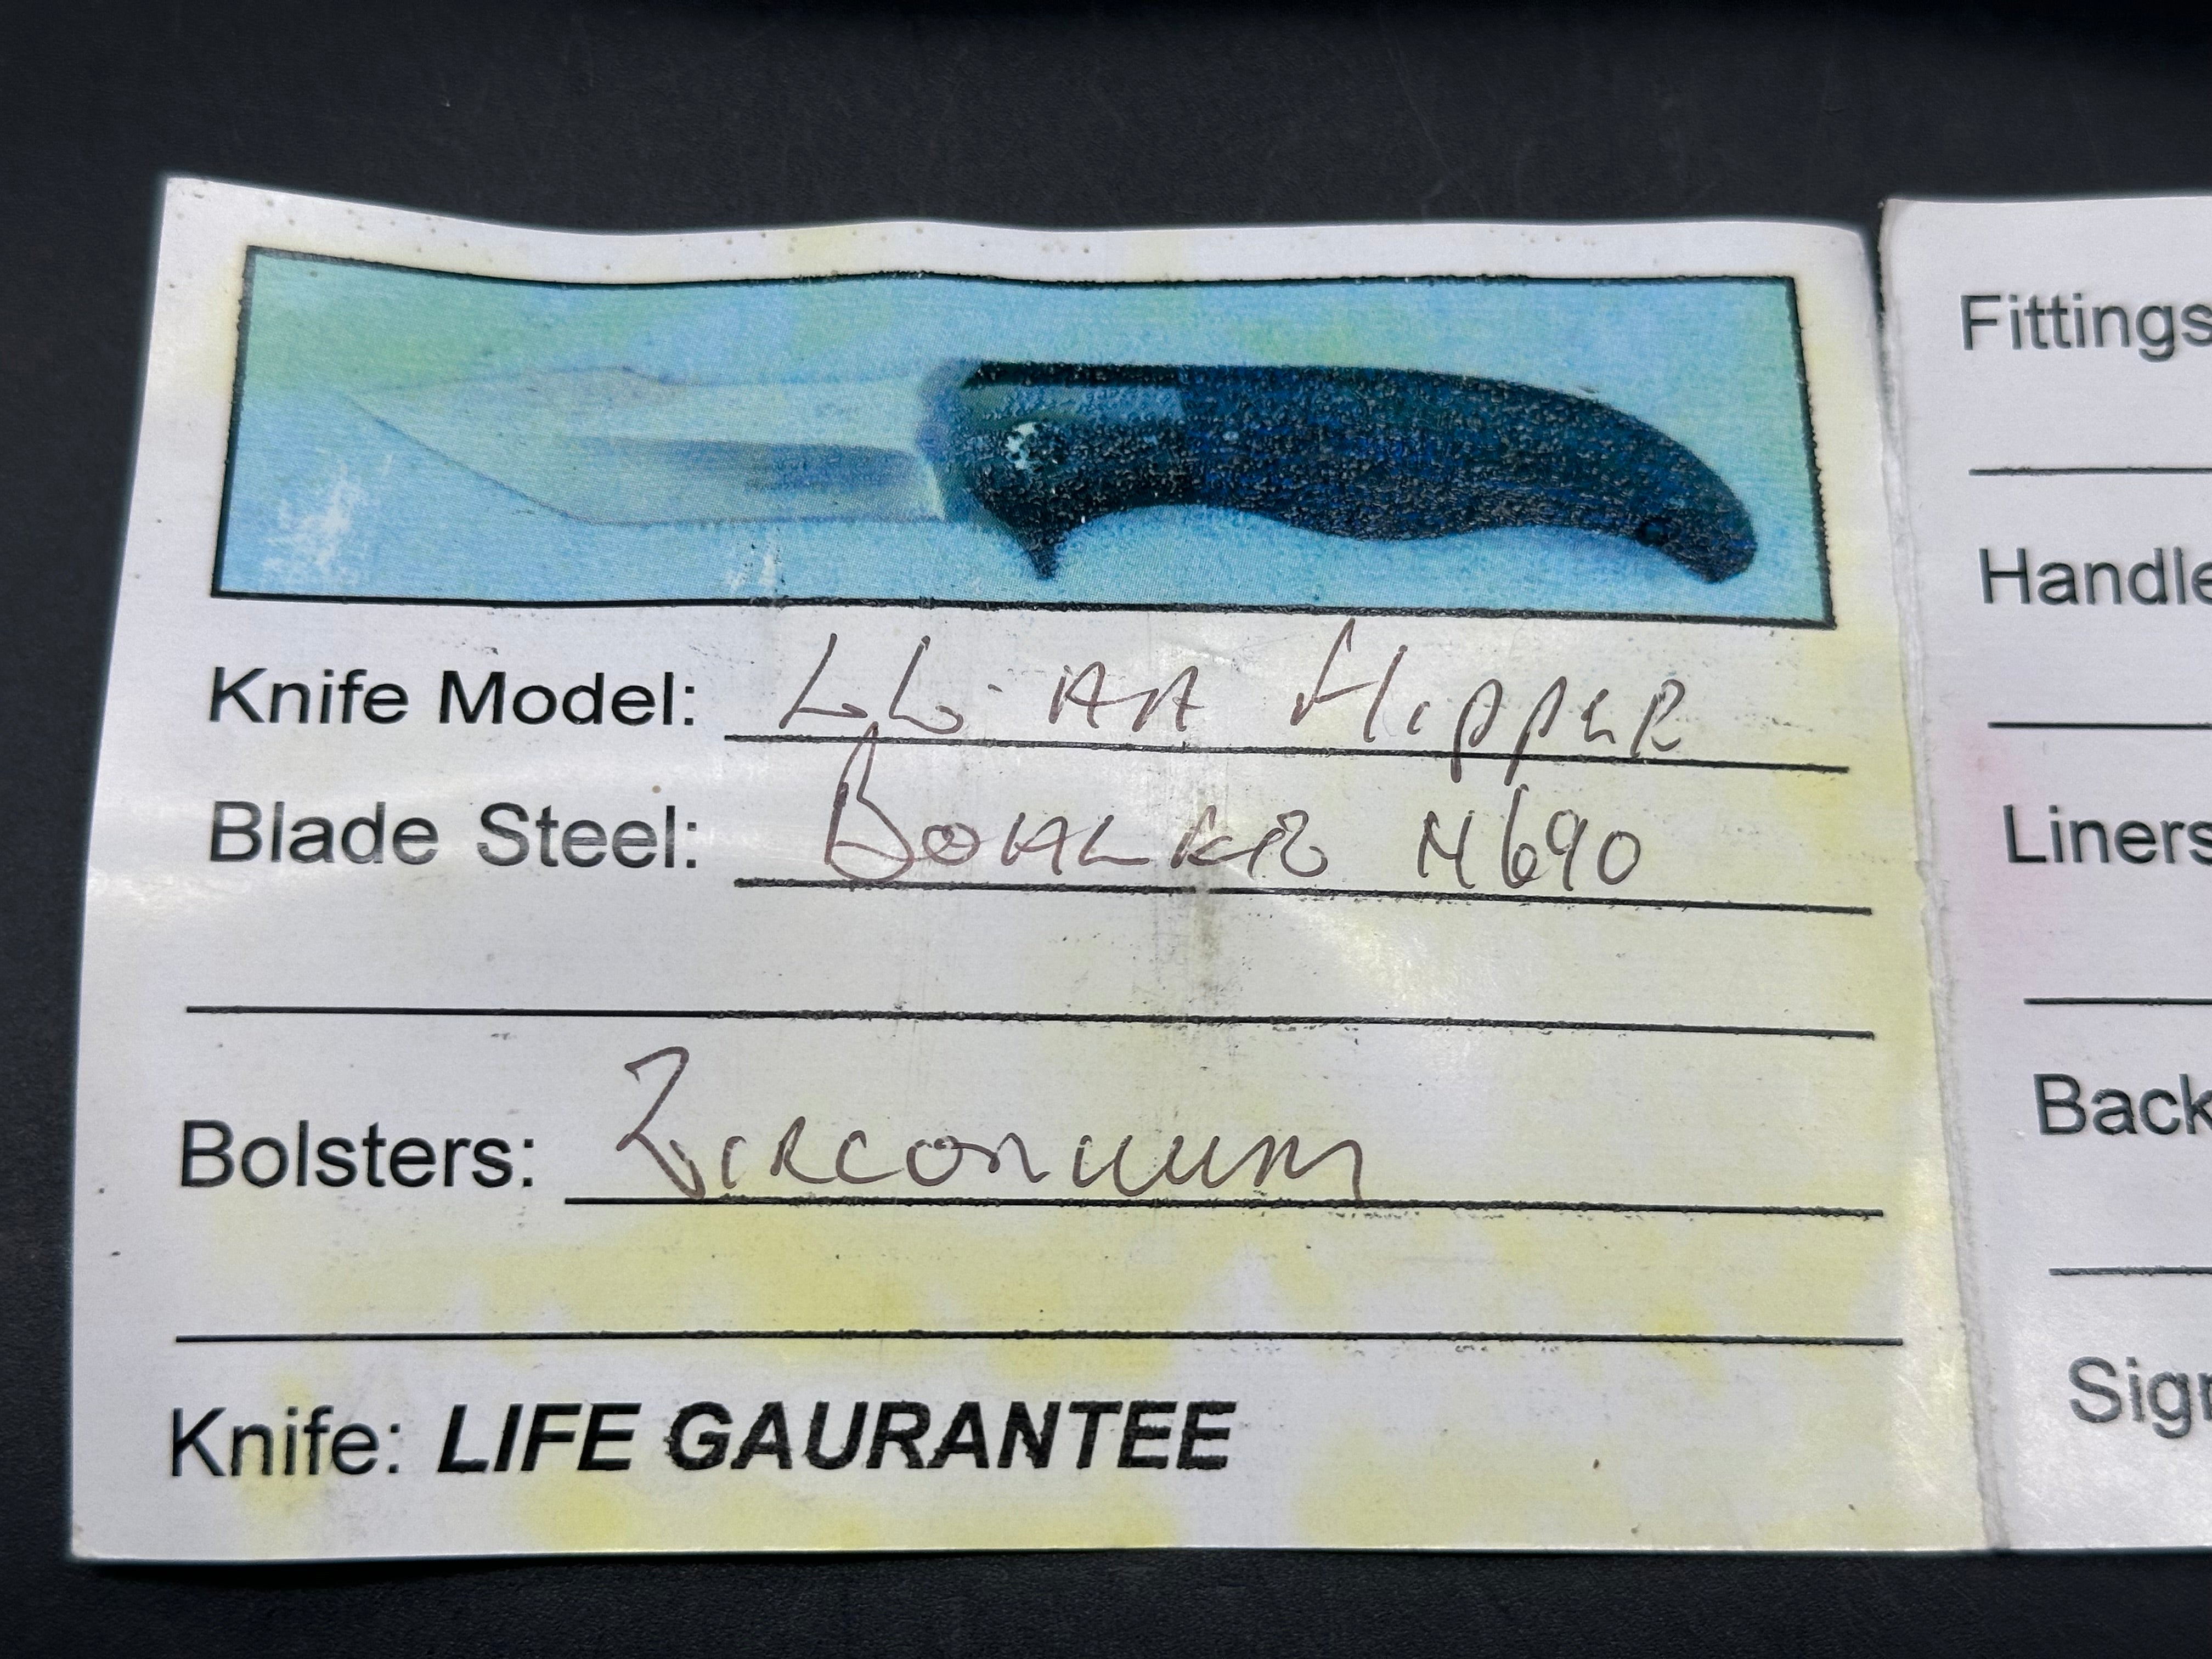 Knife Model: LL-AA Flipper
Blade Steel: BOHLER N690
Bolsters: Zirconium
Knife: LIFE GAURANTEE
Fittings
Handle
Liners
Back
Sign